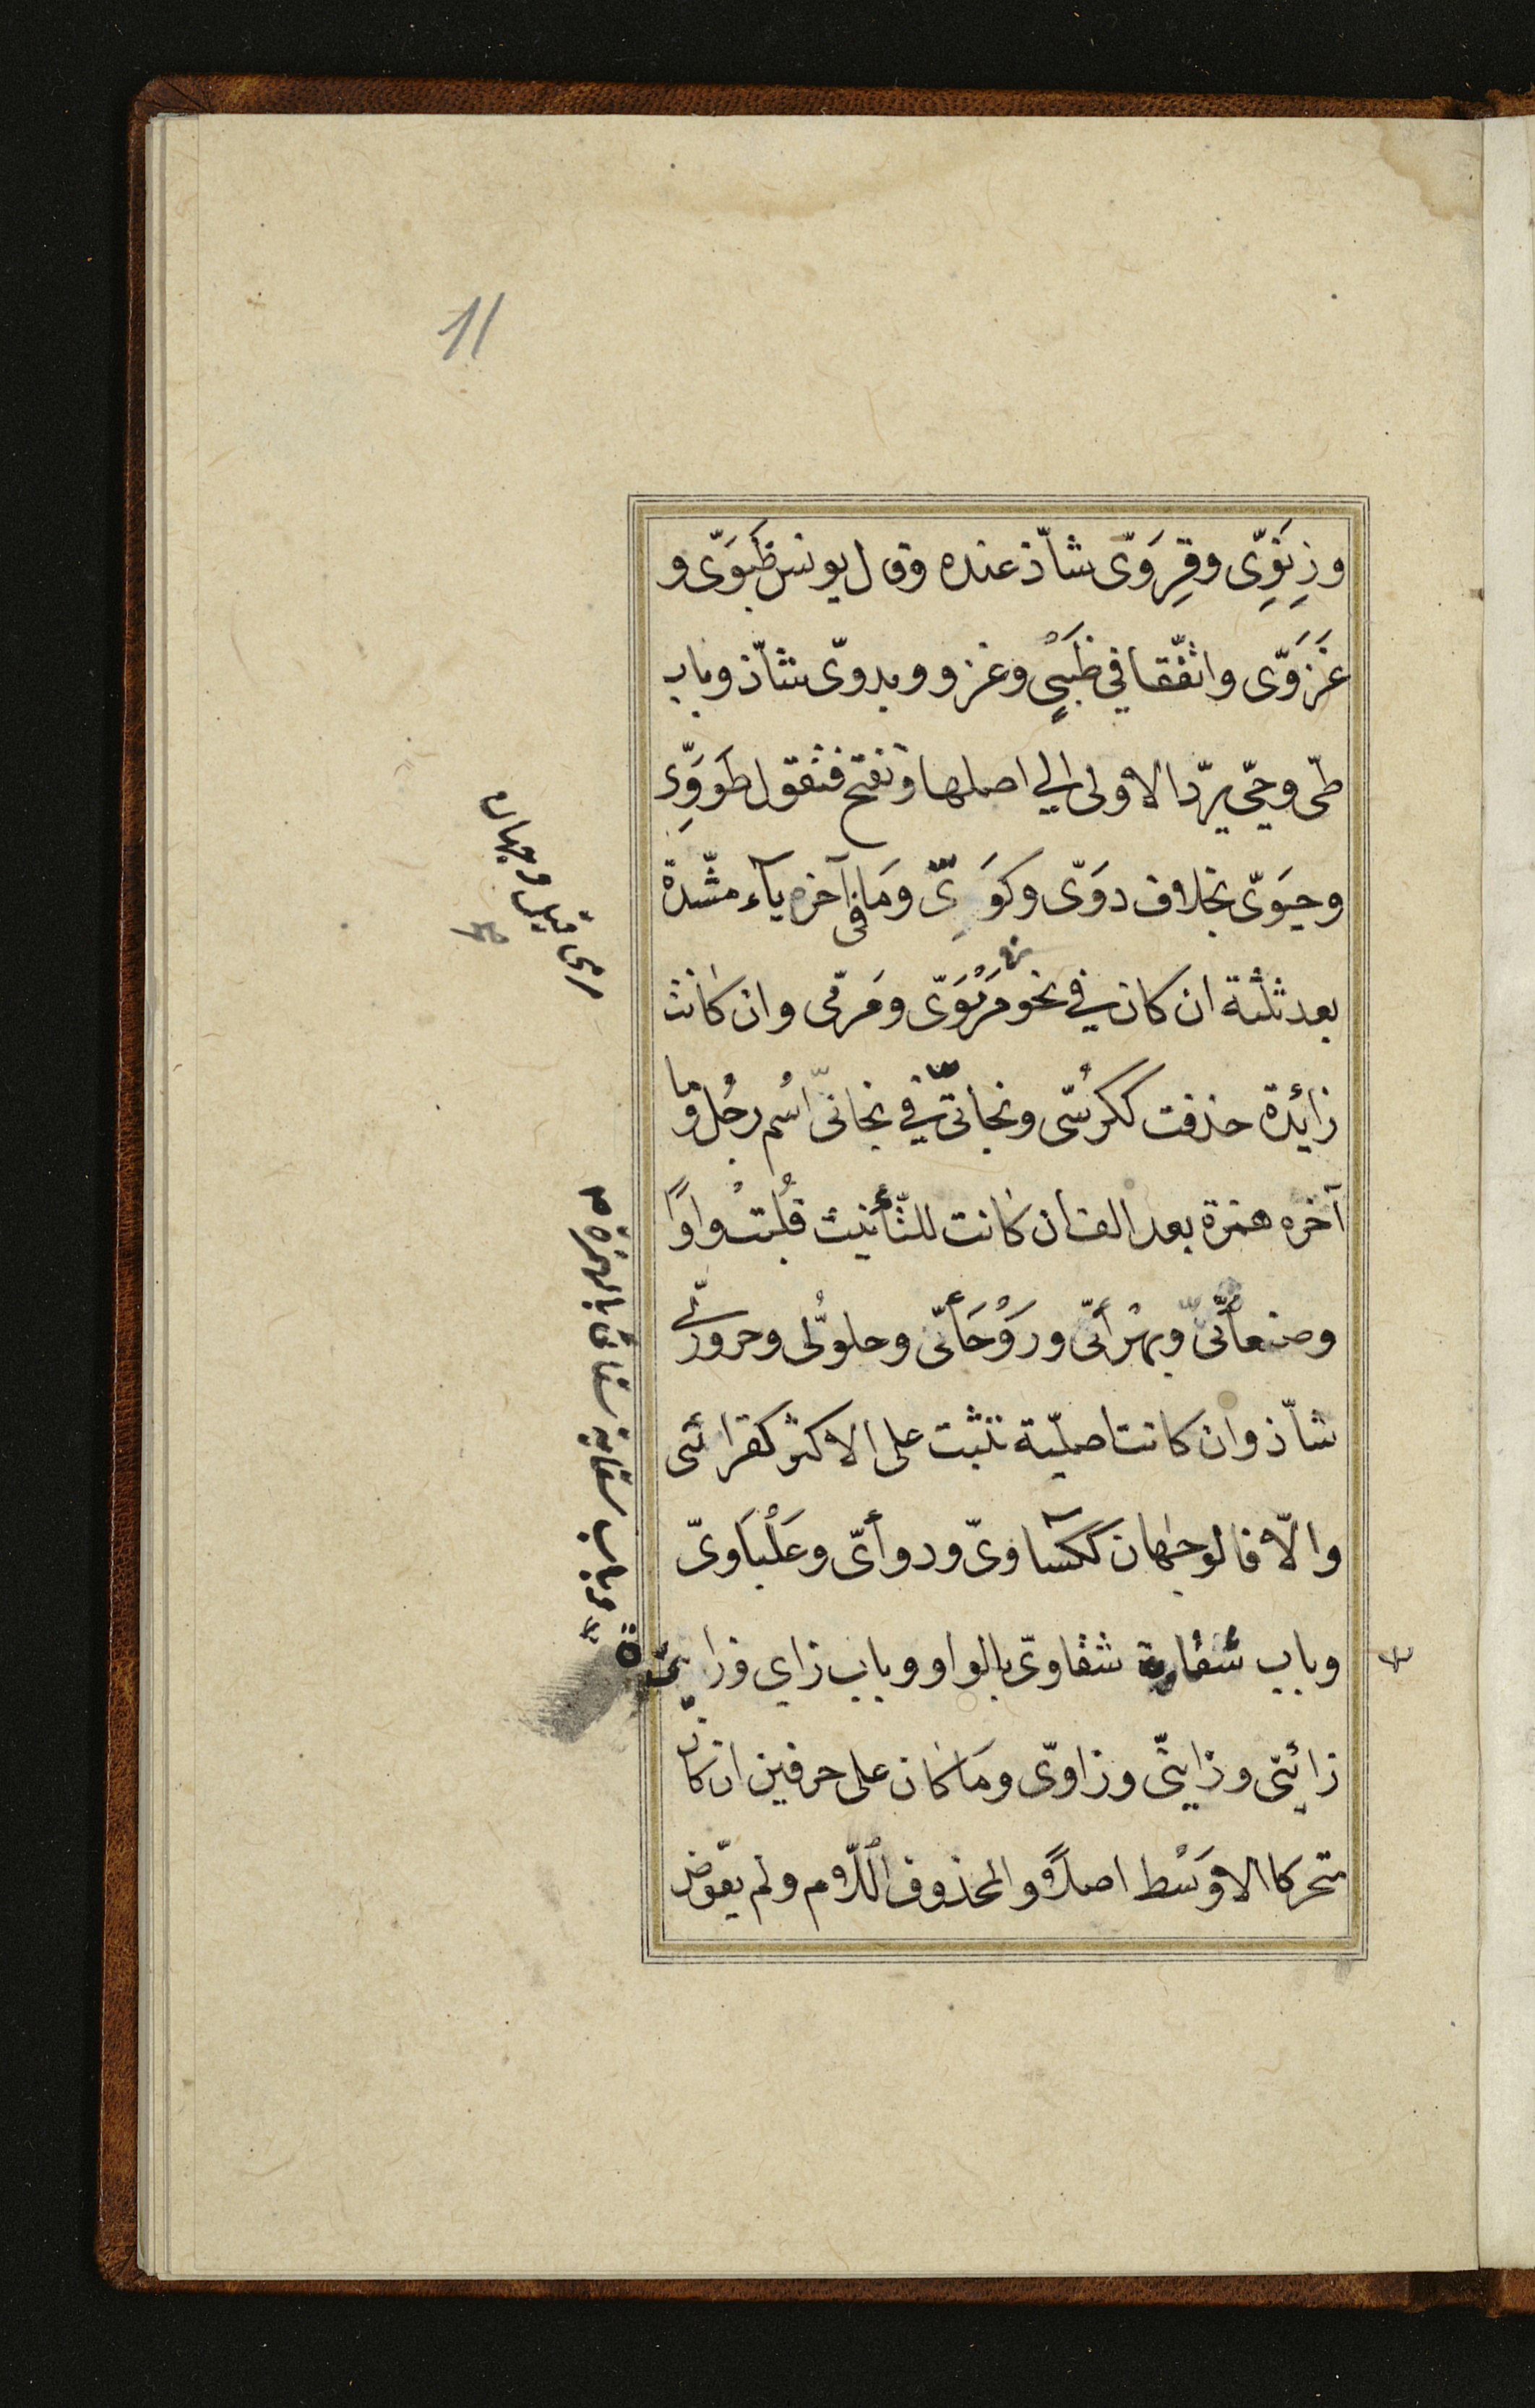 11
وزِنَوِّى وقِرَوّى شاّذ عنده وقال يونس ظَبَوَىّ و
غَزَوَّى واتفّقا في ظَبْىٍ وغزو وبدوىّ شاّذ وباب
طّى وحّى يردّ الاولى الي اصلها وتفتح فتقول طَوَوِّى
وحيَوَىّ بخلاف دوَىّ وكوَىّ ومَا فى آخره يآء مشّدة
بعد ثلثة ان كان في نحو مَرْمَوَىّ ومَرمّى وان كانت
زائدة حذفت ككرُسّى ونجاتّى في نجاتىّ اسُم رجُل وما
آخره همزة بعد الف ان كانت للتّأنيث قُلبتْ واوًا
وصنعأنّى وبهْرأنّى ورَوْحَأنّى وجلوُلّى وحرورّى
شاّذ وان كانت اصليّة تثبت على الاكثر كقرائى
والاّ فالوجهان ككساوىّ ودوأىّ وعَلْبَاوىّ
وباب سُقاية شقاوىّ بالواو وباب زاي وزاية
زائىّ وزايىّ وزاوىّ ومَا كان على حرفين ان كان
متحركا الاوَسْط اصلاً والمحذوف اللاّم ولم يعّوض
رمى قيل وجهان
وباب سقاية سقائى بالهمزة